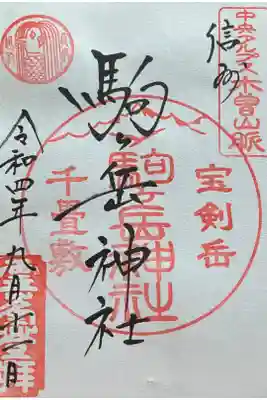 中央アルプス
木曽山脈
信州
宝剣岳
駒ヶ岳神社
駒ヶ岳神社
千畳敷
令和四年九月十一日